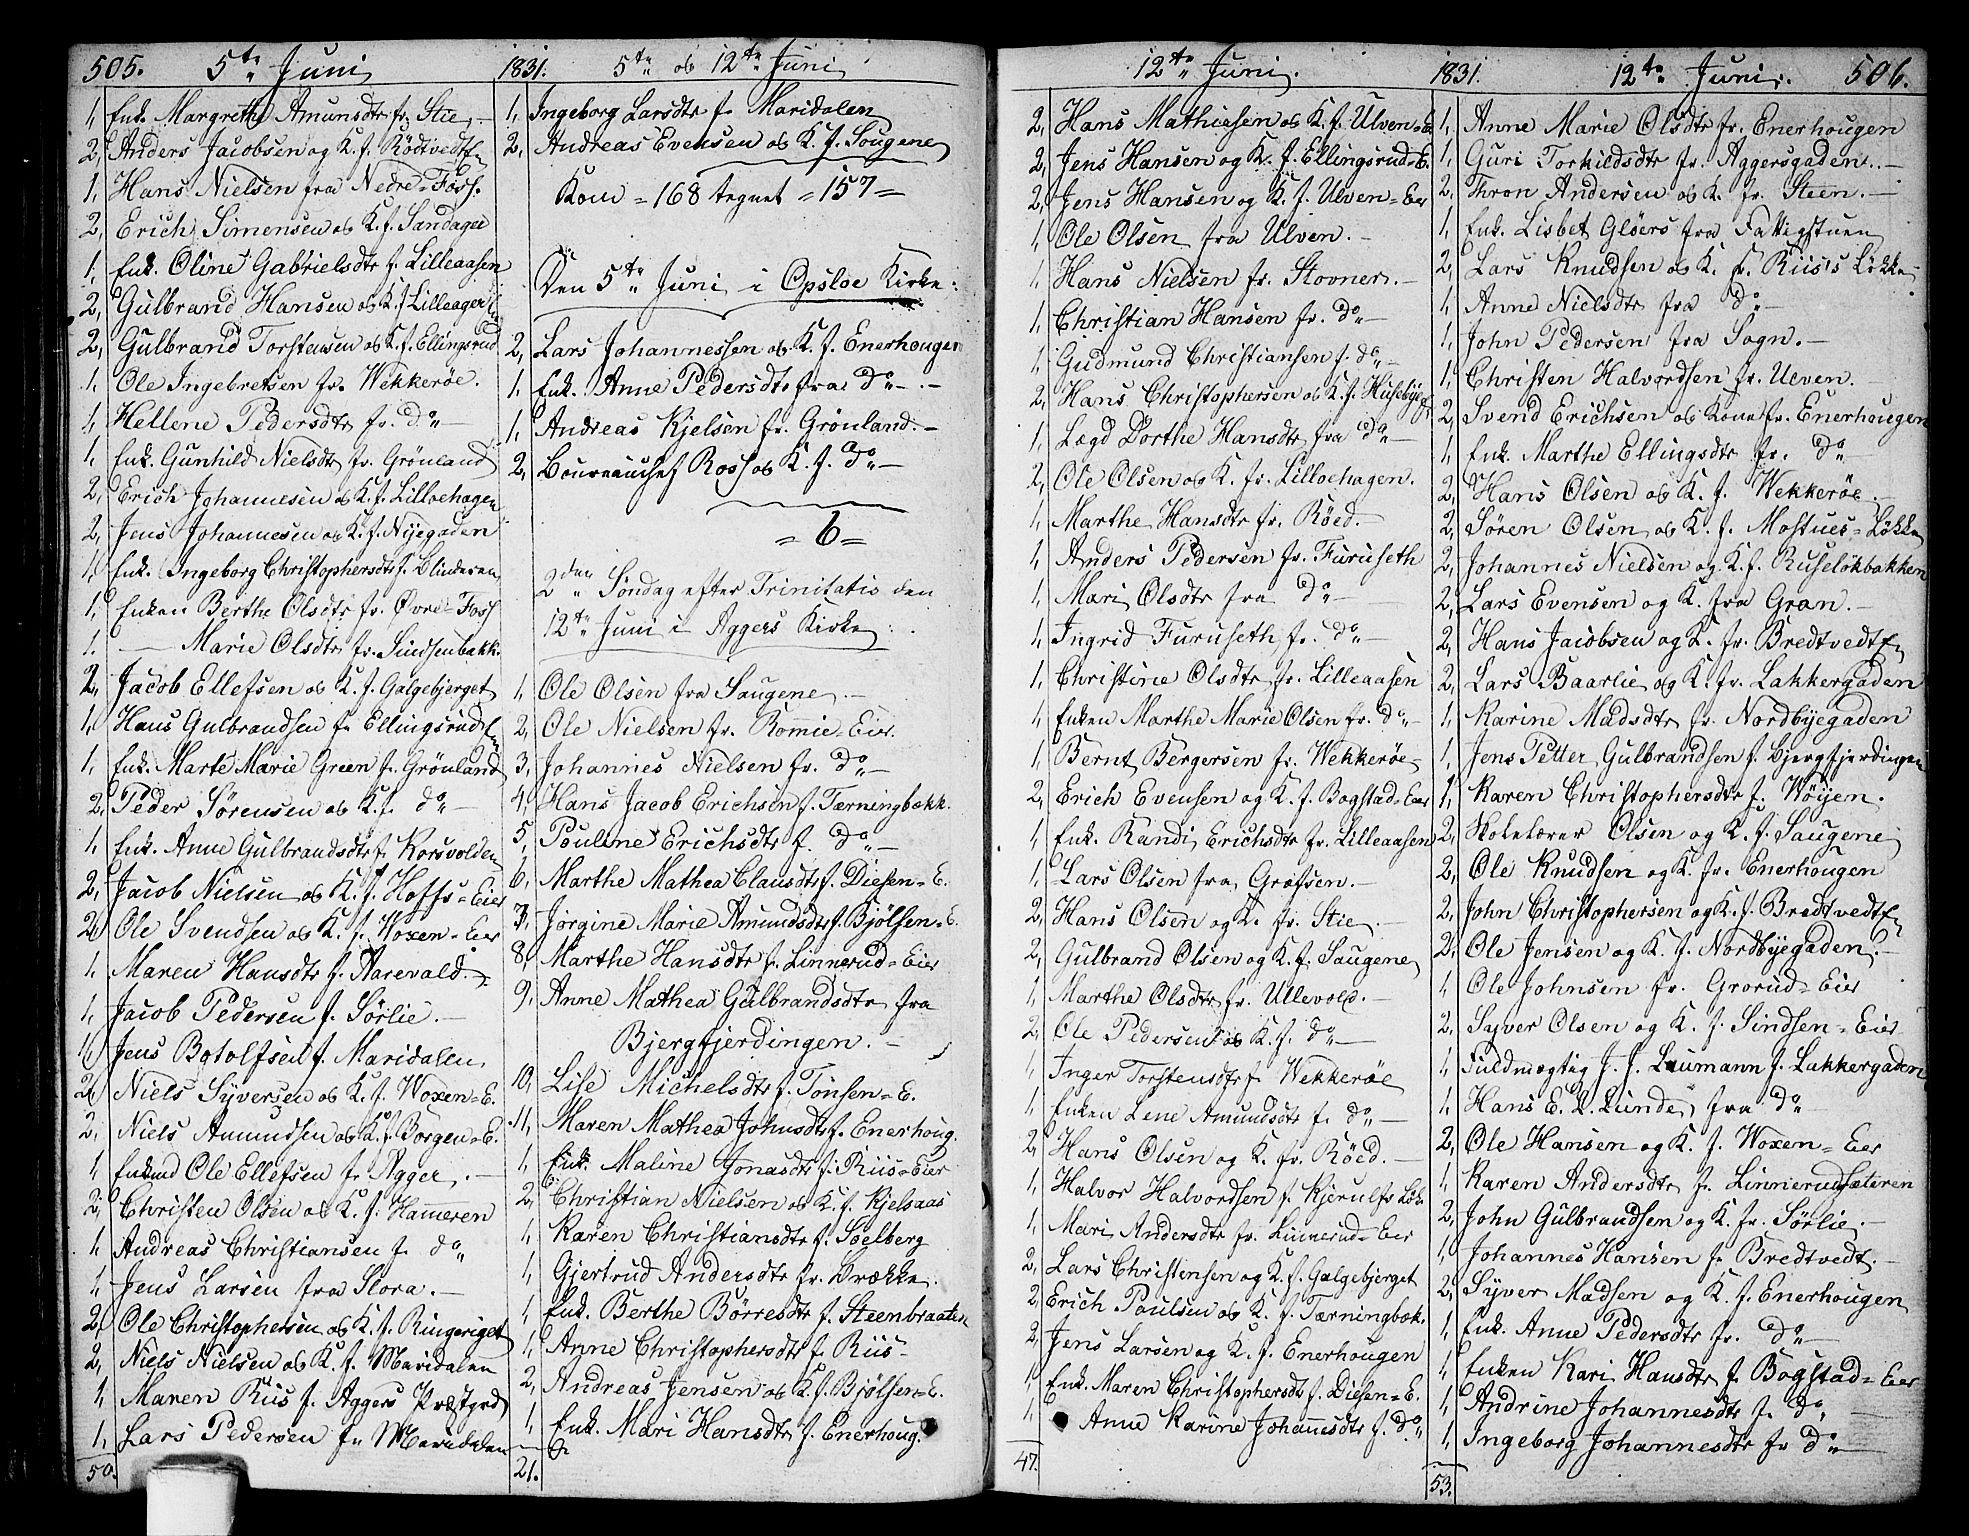 505. 5te Juni
1, Enk. Margrethe Amunsdtr fr. Stie. –
2, Anders Jacobsen og K. f. Rödtvedt E.
1, Hans Nielsen fra Nedre-Foss.
2, Erich Simensen og K. f. Sandager
1, Enk. Oline Gabrielsdtr f. Lilleaasen
2, Gulbrand Hansen og K. f. Lilleager E.
2, Gulbrand Torstensen og K. f. Ellingsrud
1, Ole Ingebretsen fr. Wekkeröe.
1, Hellene Pedersdtr fr. do –
1, Enk. Gunhild Nielsdtr fr. Grönland
2, Erich Johannesen og K. f. Lilloehagen
2, Jens Johannesen og K. f. Nijegaden
1, Enk. Ingeborg Christophersdtr f. Blinderen
1, Enken Berthe Olsdtr fr. Övre-Foss
1. — Marie Olsdtr fr. Sindsenbakk.
2, Jacob Ellefsen og K. f. Galgebjerget
1, Hans Gulbrandsen fr. Ellingsrud E.
1, Enk. Marte Marie Green f. Grönland
2, Peder Sörensen og K. f. do –
1, Enk. Anne Gulbrandsdtr f. Korsvolden
2, Jacob Nielsen og K. f. Hoffs-Eier
2, Ole Svendsen og K. f. Woxen-Eier
1, Maren Hansdtr f. Aarevald. –
1, Jacob Pedersen f. Sörlie. –
1, Jens Botolfsen f. Maridalen
2, Niels Syversen og K. f. Woxen-E.
2, Niels Amundsen og K. f. Borgen-E.
1, Enkmd Ole Ellefsen fr Agger. –
2, Christen Olsen og K. f. Hammeren
1, Andreas Christiansen f. do
1, Jens Larsen fra Slora. –
2, Ole Christophersen og K. f. Ringeriget
2, Niels Nielsen og K. f. Maridalen
1, Maren Riis f. Aggers Præstgrd
1, Lars Pedersen fr Maridalen
50.
1831. 5te og 12te Juni
1, Ingeborg Larsdtr f. Maridalen
2, Andreas Evensen og K. f. Sougene
Kom = 168 tegnet = 157 =
Den 5te Juni i Opsloe Kirke:
2, Lars Johannessen og K. f. Enerhougen
1, Enk. Anne Pedersdtr fra do –
1, Andreas Kjelsen fr. Grönland. –
2, Ross og K. f. do –
= 6 =
2den Söndag efter Trinitatis den
12te Juni i Aggers Kirke:
1, Ole Olsen fra Saugene. –
2, Ole Nielsen fr. Rommie-Eier.
3, Johannes Nielsen fr. do –
4, Hans Jacob Erichsen f. Tærningbækk.
5, Pouline Erichsdtr f. do –
6, Marthe Mathea Clausdtr f. Diesen-E.
7, Jörgine Marie Amundsdtr f. Bjölsen-E.
8, Marthe Hansdtr f. Linnerud-Eier
9, Anne Mathea Gulbrandsdtr fra
Bjergfjerdingen. –
10, Lise Michelsdtr f. Tonsen-E.
11, Maren Mathea Johnsdtr f. Enerhoug.
1, Enk. Maline Jonasdtr f. Riis-Eier
2, Christian Nielsen og K. f. Kjelsaas
1, Karen Christiansdtr f. Soelberg
1, Gjertrud Andersdtr fr. Brække.
1, Enk. Berthe Börresdtr f. Steenbraaten
1, Anne Christophersdtr f. Riis –
2, Andreas Jensen og K. f. Bjölsen-E.
1, Enk. Mari Hansdtr f. Enerhoug.
21.
12te Juni.
2, Hans Mathiasen og K. f. Ulven-E.
2, Jens Hansen og K. f. Ellingsrud-E.
2, Jens Hansen og K. f. Ulven-Eier
1, Ole Olsen fra Ulven. –
1, Hans Nielsen fr. Stovner. –
1, Christian Hansen fr. do –
1, Gudmund Christiansen f. do –
2, Hans Christophersen og K. f. Husebye E.
1, Lægd Dorthe Hansdtr fra do –
2, Ole Olsen og K. fr. Lilloehagen.
1, Marthe Hansdtr fr. Röed. –
1, Anders Pedersen fr. Furuseth
1, Mari Olsdtr fra do –
1, Ingrid Furuseth fr. do –
1, Christine Olsdtr fr. Lilleaasen
1, Enken Marthe Marie Olsen fr. do –
1, Bernt Bergersen fr. Wekkeröe –
2, Erich Evensen og K. f. Bogstad-Eier
1, Enk. Randi Erichsdtr fr. Lilleaasen
1, Lars Olsen fra Græfsen. –
2, Hans Olsen og K. fr. Stie. –
2, Gulbrand Olsen og K. f. Saugene
1, Marthe Olsdtr fr. Ullevold. –
2, Ole Pedersen og K. f. do –
1, Inger Torstensdtr fr Wekkeröe
1, Enken Lene Amundsdtr f. do –
2, Hans Olsen og K. fr. Röed. –
1, Halvor Halvordsen f. Kjerulfs Løk.
1, Mari Andersdtr fr. Linnerud-Eier
2, Lars Christensen og K. f. Galgebjerget
2, Erich Poulsen og K. f. Tærningbæk.
2, Jens Larsen og K. f. Enerhougen
1, Enk. Maren Christophersdtr f. Diesen-E.
1, Anne Karine Johannesdtr f. do
47.
1831. 12te Juni. 506.
1, Anne Marie Olsdtr fr. Enerhougen
1, Guri Torkildsdtr fr. Aggersgaden. –
2, Thron Andersen og K. fr. Steen. –
1, Enk. Lisbet Glöers fra Fattigstuen
2, Lars Knudsen og K. fr. Riis's Løkke
1, Anne Nielsdtr fra do –
1, John Pedersen fra Sogn. –
1, Christen Halvordsen fr. Ulven. –
2, Svend Erichsen og Kone fr. Enerhougen
1, Enk. Marthe Ellingsdtr fr. do –
2, Hans Olsen og K. f. Wekkeröe. –
2, Sören Olsen og K. f. Mostues-Løkke
2, Johannes Nielsen og K. f. Ruseløkbakken
2, Lars Evensen og K. fra Gran. –
2, Hans Jacobsen og K. fr. Bredtvedt E.
2, Lars Baarlie og K. fr. Lakkergaden
1, Karine Madsdtr fr. Nordbyegaden
1, Jens Petter Gulbrandsen f. Bjergfjerdingen
1, Karen Christophersdtr f. Wöyen.
2, Skolelærer Olsen og K. f. Saugene
2, Ole Knudsen og K. fr. Enerhougen
2, John Christophersen og K. f. Bredtvedt E.
2, Ole Jensen og K. f. Nordbyegaden. –
1, Ole Johnsen fr. Grorud-Eier
2, Syver Olsen og K. f. Sindsen-Eier
1, Fuldmægtig J. J. Laumann f. Lakkergaden
1, Hans E. L. Lunde, fra do –
2, Ole Hansen og K. f. Woxen-Eier
1, Karen Andersdtr fr. Linnerudsæteren
2, John Gulbrandsen og K. fr. Sörlie. –
1, Johannes Hansen fr Bredtvedt. –
2, Syver Madsen og K. f. Enerhougen
1, Enk. Anne Pedersdtr fr. do –
1, Enken Kari Hansdtr f. Bogstad-Eier
1, Andrine Johannesdtr f. do
1, Ingeborg Johannesdtr fr do –
53.